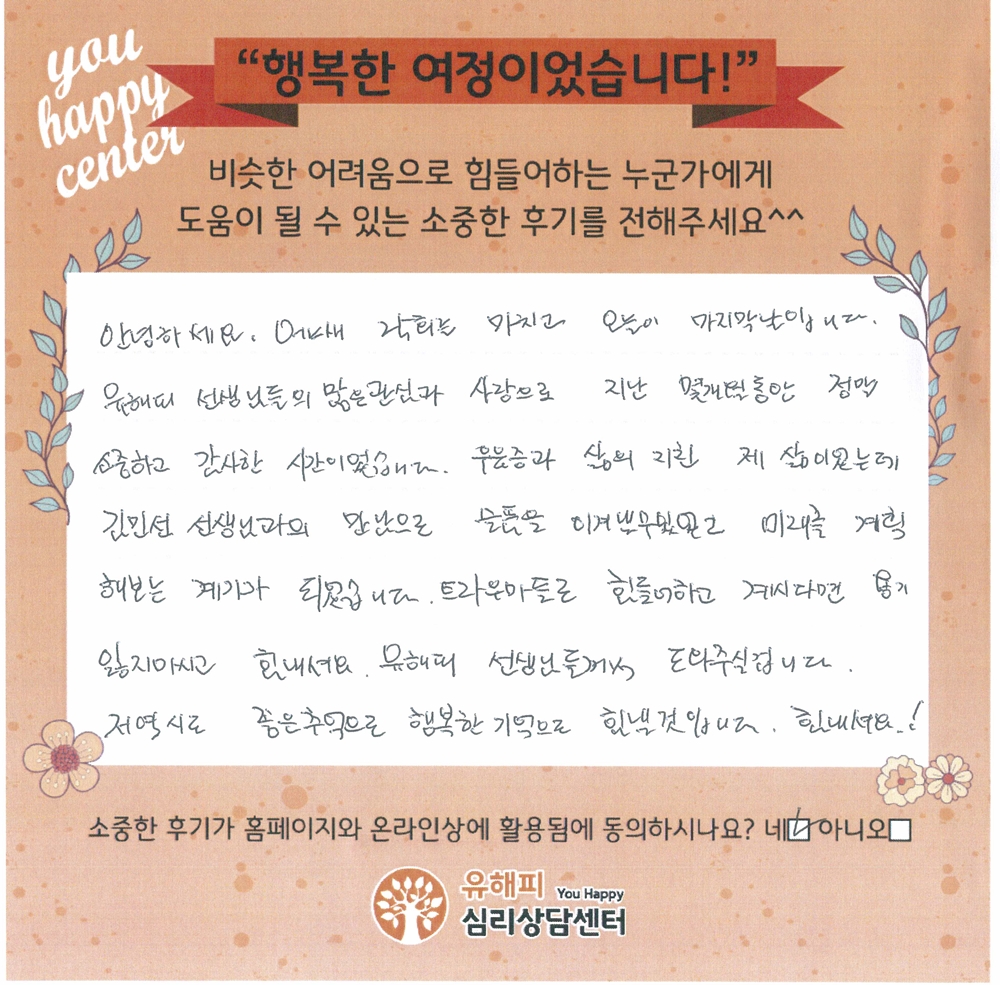 you
happy
center
“행복한 여정이었습니다!”
비슷한 어려움으로 힘들어하는 누군가에게
도움이 될 수 있는 소중한 후기를 전해주세요^^
안녕하세요. 어느새 마치고 오늘이 마지막날입니다.
유해피 선생님들의 많은관심과 사랑으로 지난 몇개월동안 정말
소중하고 감사한 시간이었습니다. 우울증과 삶의 지친 제 삶이었는데
김민선 선생님과의 만남으로 슬픔을 미래를 계획
해보는 계기가 되었습니다. 트라우마들로 힘들어하고 계시다면 용기
잃지마시고 힘내세요. 유해피 선생님들께서 도와주실겁니다.
저역시도 좋은추억으로 행복한 기억으로 힘낼것입니다. 힘내세요.!
소중한 후기가 홈페이지와 온라인상에 활용됨에 동의하시나요? 네☑ 아니오□
유해피 You Happy
심리상담센터